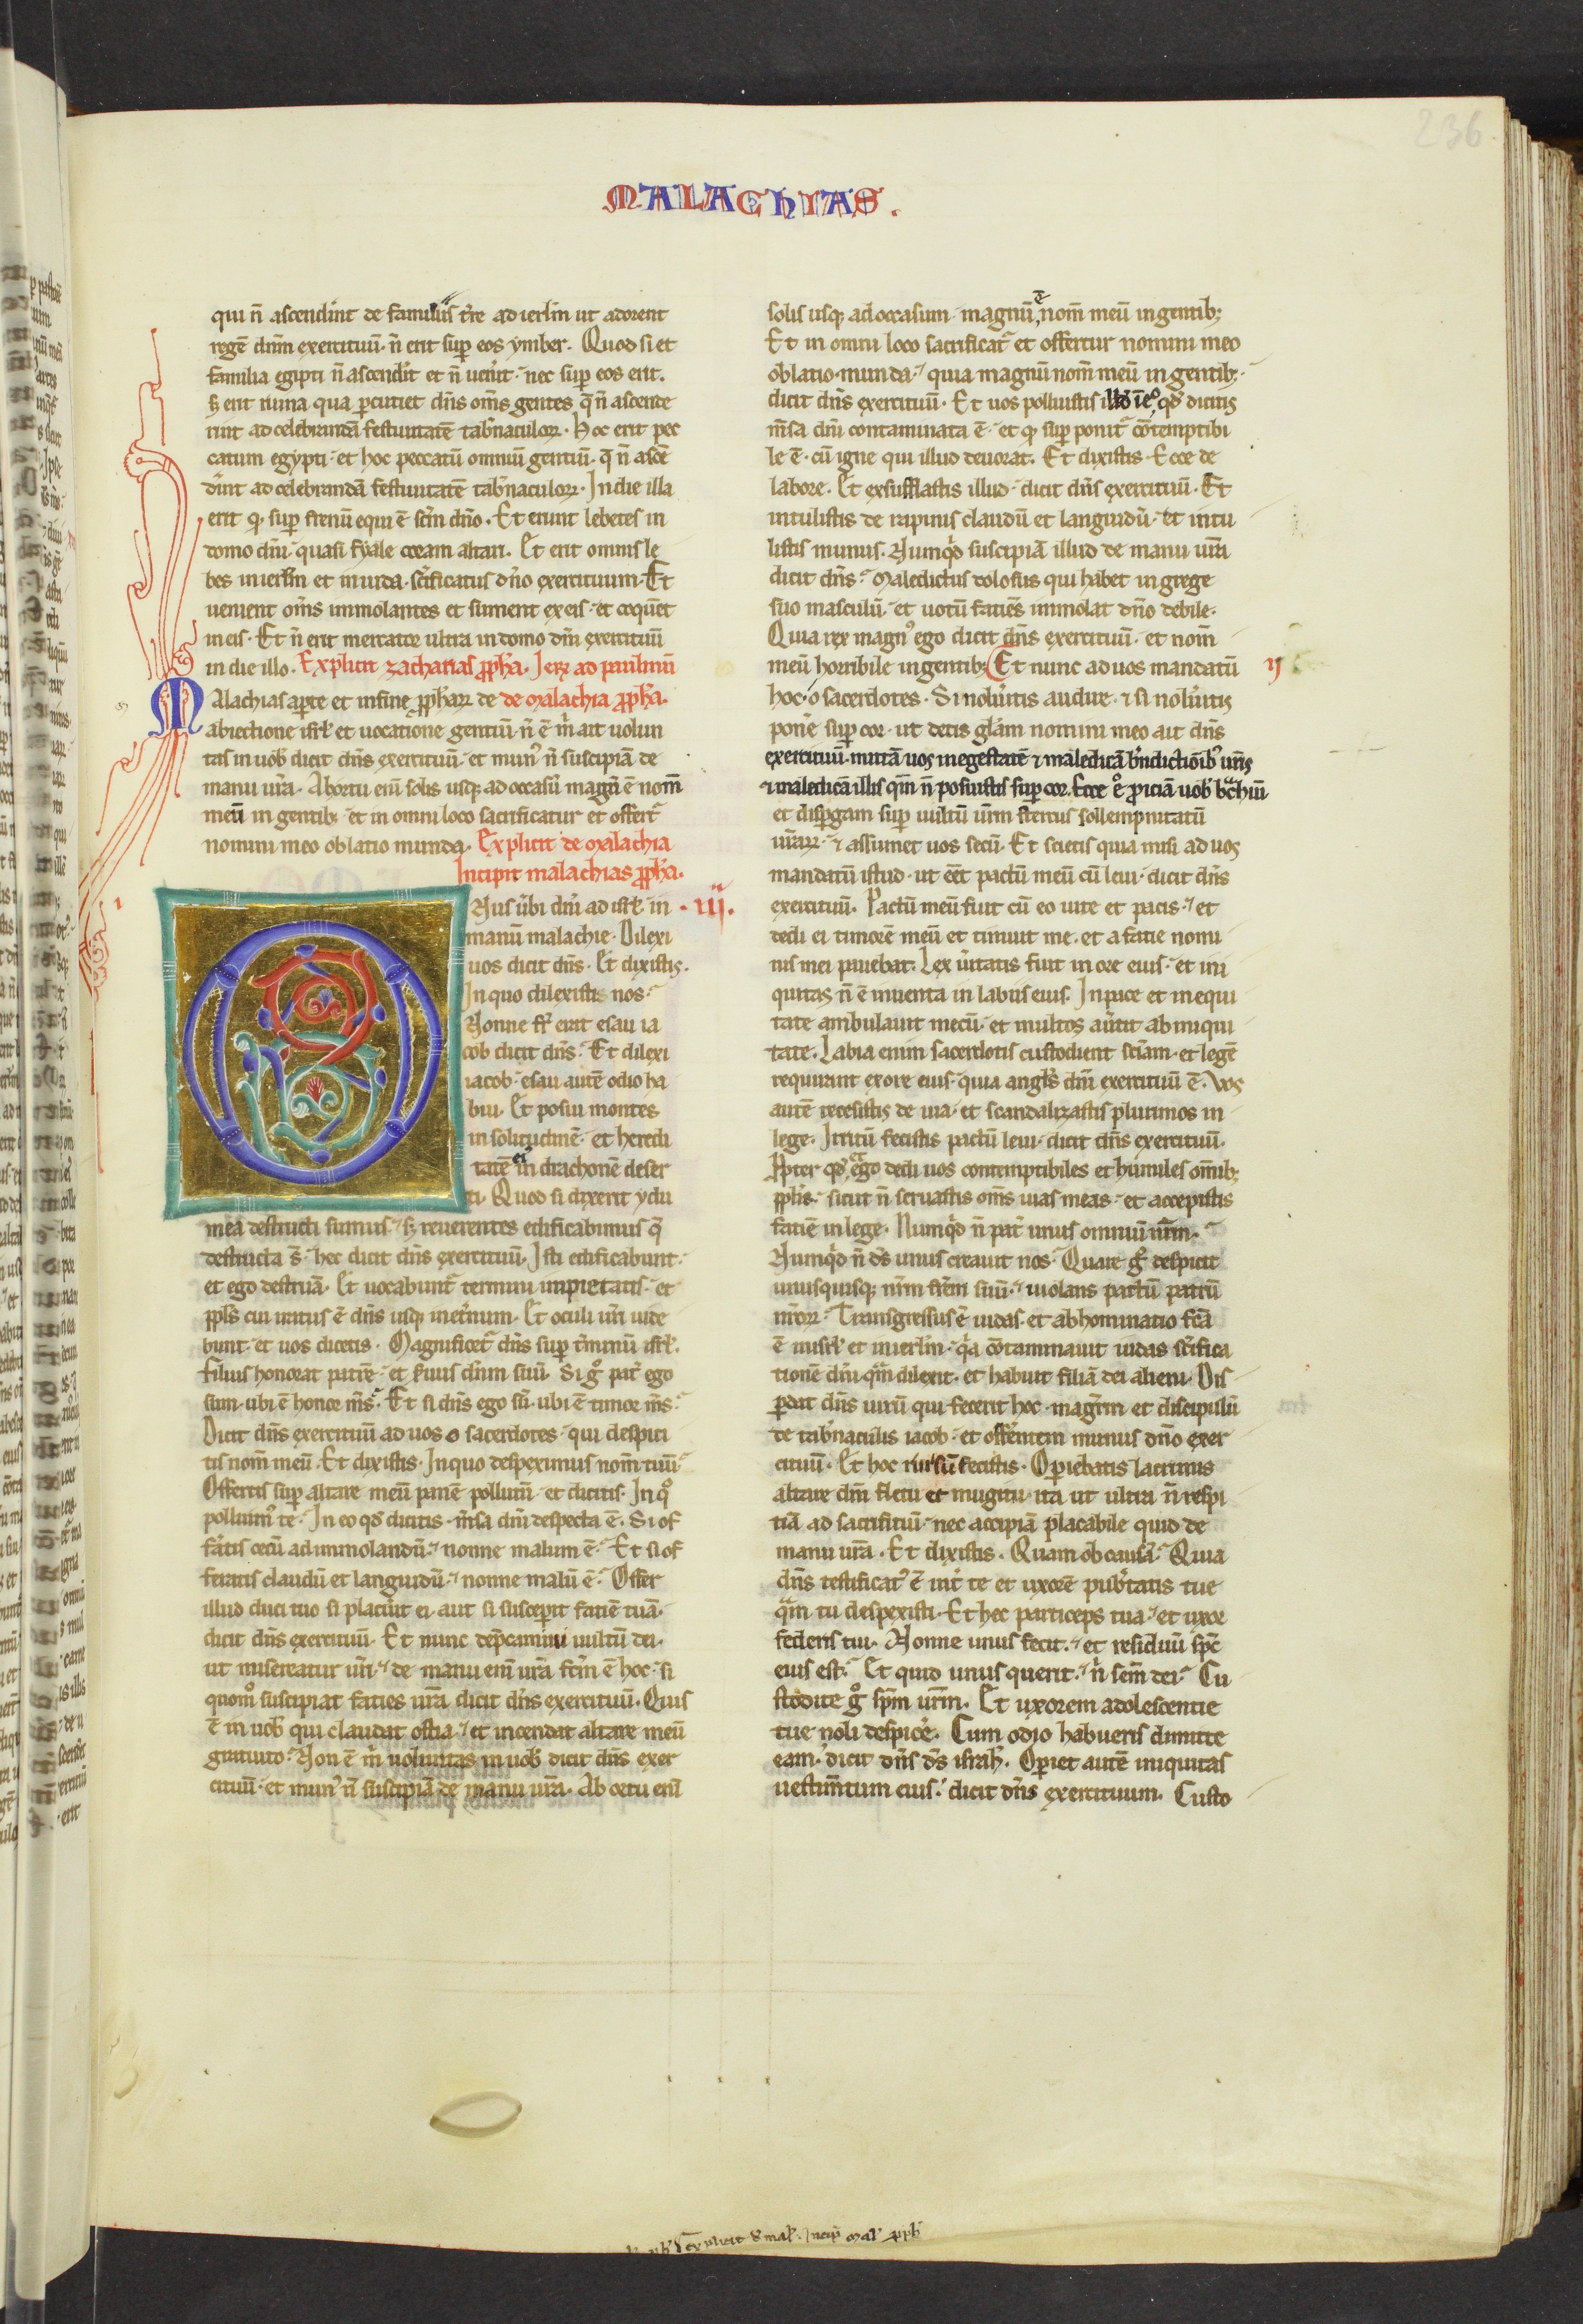 236
MALACHIAS.
qui n̄ ascendint de familiis tr̄e ad ierl̄m ut adorent
regē dn̄m exercituū· n̄ erit sup̄ eos ymber. Quod si et
familia egipti n̄ ascendit et n̄ uen̄it· nec sup̄ eos erit.
s; erit ruina qua p̄cutiet dn̄s om̄s gentes q̄ n̄ ascende
rint ad celebrandā festiuitatē tab̄naculoꝝ. Hoc erit pec
catum egypti· et hoc peccatū omniū gentiū· q̄ n̄ ascē
d̄int ad celebrandā festiuitatē tab̄naculoꝝ. In die illa
erit q sup̄ frenū equi ē sc̄m dn̄o. Et erunt lebetes in
domo dn̄i· quasi fyale coram altari. Et erit omnis le
bes in ierl̄m et in iuda· sc̄ificatus dn̄o exercituum. Et
uenient om̄s immolantes et sument ex eis· et coquēt
in eis. Et n̄ erit mercator ultra in domo dn̄i exercituū
in die illo. Explicit zacharias pp̄ha. Ierꝫ ad paulinū
Malachias ap̄te et in fine pp̄harꝝ de de malachia pp̄ha.
abiectione isrl̄· et uocatione gentiū· n̄ ē m̄ ait uolun
tas in uob̄ dicit dn̄s exercituū· et mun⁹ n̄ suscipiā de
manu ur̄a. Ab ortu eni solis usqꝫ ad occasū magn̄ ē nom̄
meū in gentibꝫ· et in omni loco sacrificatur et offert᷑
nomini meo oblatio munda. Explicit de malachia
Incipit malachias pp̄ha.
Onus ūbi dn̄i ad isrl̄ in .iii.
manū malachie. Dilexi
uos dicit dn̄s. Et dixistis.
In quo dilexistis nos·
Nonne fr̄ erat esau ia
cob dicit dn̄s. Et dilexi
iacob· esau autē odio ha
bui. Et posui montes
in solitudinē· et heredi
tatē ei⁹ in drachonē deser
ti. Quod si dixerit ydu
mea destructi sumus· s; reuertentes edificabimus q̄
destructa s̄· hec dicit dn̄s exercituū. Isti edificabunt·
et ego destruā. Et uocabunt᷑ termini impietatis· et
pp̄ls cui iratus ē dn̄s usqꝫ inet̄num. Et oculi ur̄i uide
bunt· et uos dicetis. Magnificet᷑ dn̄s sup̄ t̄minū isrl̄.
Filius honorat patrē· et seruus dn̄m suū. Si g° pat̄ ego
sum· ubi ē honor m̄s. Et si dn̄s ego sū· ubi ē timor m̄s.
Dicit dn̄s exercituū ad uos o sacerdotes· qui despici
tis nom̄ meū. Et dixistis. In quo despeximus nom̄ tuū·
Offertis sup̄ altare meū panē pollutū· et dicitis. In q°
polluim⁹ te. In eo qd̄ dicitis· m̄sa dn̄i despecta ē. Si of
f̄atis cecū ad immolandū· nonne malum ē· Et si of
feratis claudū et languidū· nonne malū ē. Offer
illud duci tuo si placūit ei· aut si suscep̄it faciē tuā.
dicit dn̄s exercituū. Et nunc dep̄camini uultū dei·
ut misereatur ur̄i· de manu eni ur̄a fc̄m ē hoc· si
quom° suscipiat facies ur̄as dicit dn̄s exercituū. Quis
ē in uob̄ qui claudat ostia· et incendat altare meū
gratuito. Non ē m̄ uoluntas in uob̄ dicit dn̄s exer
cituū· et mun⁹ n̄ suscipiā de manu ur̄a. Ab ortu eni
solis usqꝫ ad occasum· magnū ē nom̄ meū in gentibꝫ
Et in omni loco sacrificat᷑ et offertur nomini meo
oblatio munda· quia magnū nom̄ meū in gentibꝫ·
dicit dn̄s exercituū. Et uos polluistis illd̄ ī eo qd̄ dicitis
m̄sa dn̄i contaminata ē· et q sup̄ponit᷑ cōtemptibi
le ē· cū igne qui illud deuorat. Et dixistis. Ecce de
labore. Et exsufflastis illud· dicit dn̄s exercituū. Et
intulistis de rapinis claudū et languidū· et intu
listis munus. Numqd̄ suscipiā illud de manu ur̄a
dicit dn̄s. Maledictus dolosus qui habet in grege
suo masculū· et uotū faciēs immolat dn̄o debile.
Quia rex magn⁹ ego dicit dn̄s exercituū· et nom̄
meū horribile in gentibꝫ Et nunc ad uos mandatū ij
hoc· o sacerdotes. Si nolūitis audire· & si nolūitis
ponē sup̄ cor· ut detis gl̄am nomini meo ait dn̄s
exercituū· mittā uos in egestatē & maledicā b̄ndictioīb⁹ ur̄is
& maledicā illis qm̄ n̄ posuistis sup̄ cor. Ecce e° proiciā uob̄ b̄chiū
et disp̄gam sup̄ uultū ur̄m stercus sollempnitatū
ur̄arꝝ· & assumet uos secū. Et scietis quia misi ad uos
mandatū istud· ut eēt pactū meū cū leui· dicit dn̄s
exercituū. Pactū meū fuit cū eo uite et pacis· et
dedi ei timorē meū et timuit me· et a facie nomi
nis mei pauebat. Lex ūitatis fuit in ore eius· et ini
quitas n̄ ē inuenta in labiis eius. In pace et in equi
tate ambulauit mecū· et multos aūtit ab iniqui
tate. Labia enim sacerdotis custodient sciam· et legē
requirent ex ore eius· quia angls̄ dn̄i exercituū ē. Vos
autē recessistis de uia· et scandalizastis plurimos in
lege. Irritū fecistis pactū leui· dicit dn̄s exercituū.
Ppter qd̄ ego dedi uos contemptibiles et humiles om̄ibꝫ
pp̄lis· sicut n̄ seruastis om̄s uias meas· et accepistis
faciē in lege. Numqd̄ n̄ pat̄ unus omniū nr̄m.
Numqd̄ n̄ ds̄ unus creauit nos· Quare g° despicit
unusquisqꝫ nr̄m frēm suū· uiolans pactū patrū
nr̄orꝝ. Transgressus ē iudas· et abhominatio fc̄a
ē in isrl̄ et in ierl̄m· q̄a cōtaminauit iudas sc̄ifica
tionē dn̄i qm̄ dilexit· et habuit filiā dei alieni. Dis
p̄dat dn̄s uirū qui fecerit hoc· magr̄m et discipulū
de tab̄naculis iacob· et off̄entem munus dn̄o exer
cituū. Et hoc rursū fecistis. Op̄iebatis lacrimis
altare dn̄i fletu et mugitu· ita ut ultra n̄ respi
tiā ad sacrificiū· nec accipiā placabile quid de
manu ur̄a. Et dixistis. Quam ob causā· Quia
dn̄s testificat⁹ ē int̄ te et uxorē pub̄tatis tue
qm̄ tu despexisti. Et hec particeps tua· et uxor
federis tui. Nonne unus fecit· et residuū sp̄c
eius est· Et quid unus querit· n̄ sem̄ dei· Cu
stodite g° sp̄m ur̄m. Et uxorem adolescentie
tue noli despicē. Cum odio habueris dimitte
eam· dicit dn̄s ds̄ israh̄l. Op̄iet autē iniquitas
uestim̄tum eius· dicit dn̄s exercituum. Custo
explicit mal̄. Incip̄ mal̄ pph̄